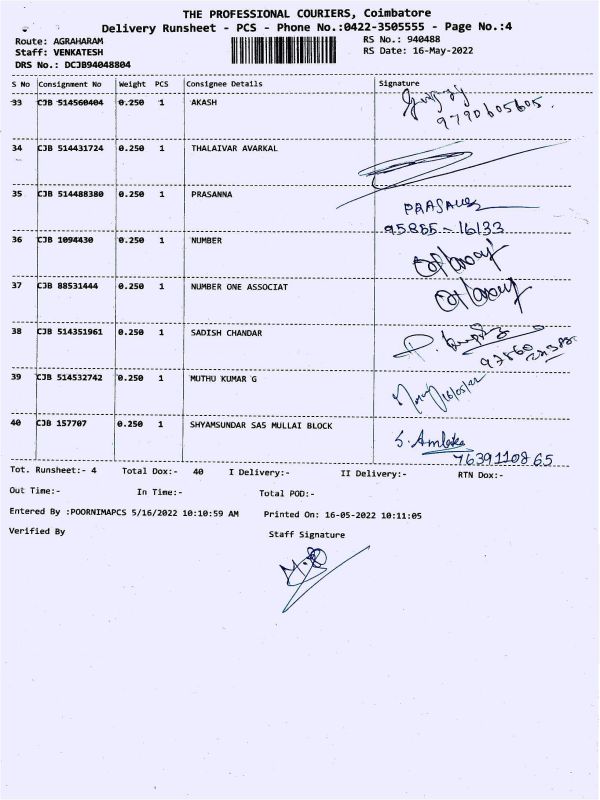 THE PROFESSIONAL COURIERS, Coimbatore
Delivery Runsheet - PCS - Phone No.:0422-3505555 - Page No.:4
Route: AGRAHARAM RS No.: 940488
Staff: VENKATESH RS Date: 16-May-2022
DRS No.: DCJB94048804
S No Consignment No Weight PCS Consignee Details Signature
33 CJB 514560404 0.250 1 AKASH
9790605605.
34 CJB 514431724 0.250 1 THALAIVAR AVARKAL
35 CJB 514488380 0.250 1 PRASANNA
95885-16133
36 CJB 1094430 0.250 1 NUMBER
37 CJB 88531444 0.250 1 NUMBER ONE ASSOCIAT
38 CJB 514351961 0.250 1 SADISH CHANDAR
39 CJB 514532742 0.250 1 MUTHU KUMAR G
16/05/22
40 CJB 157707 0.250 1 SHYAMSUNDAR SA5 MULLAI BLOCK
7639110865
Tot. Runsheet:- 4 Total Dox:- 40 I Delivery:- II Delivery:- RTN Dox:-
Out Time:- In Time:- Total POD:-
Entered By :POORNIMAPCS 5/16/2022 10:10:59 AM Printed On: 16-05-2022 10:11:05
Verified By Staff Signature